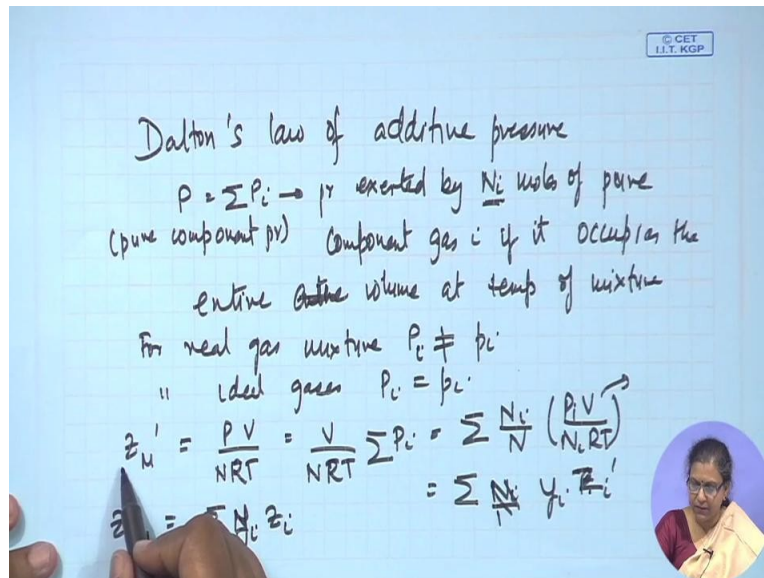 © CET
I.I.T. KGP
Dalton's law of additive pressure
P = ΣPi → pr exerted by Ni mols of pure
(pure component pr) component gas i if it occupies the
entire volume at temp of mixture
For real gas mixture Pi ≠ pi
" ideal gases Pi = pi.
zM' = PV/NRT = V/NRT ΣPi = Σ Ni/N (PiV/NiRT)
= Σ Ni/N yi zi'
= yi zi